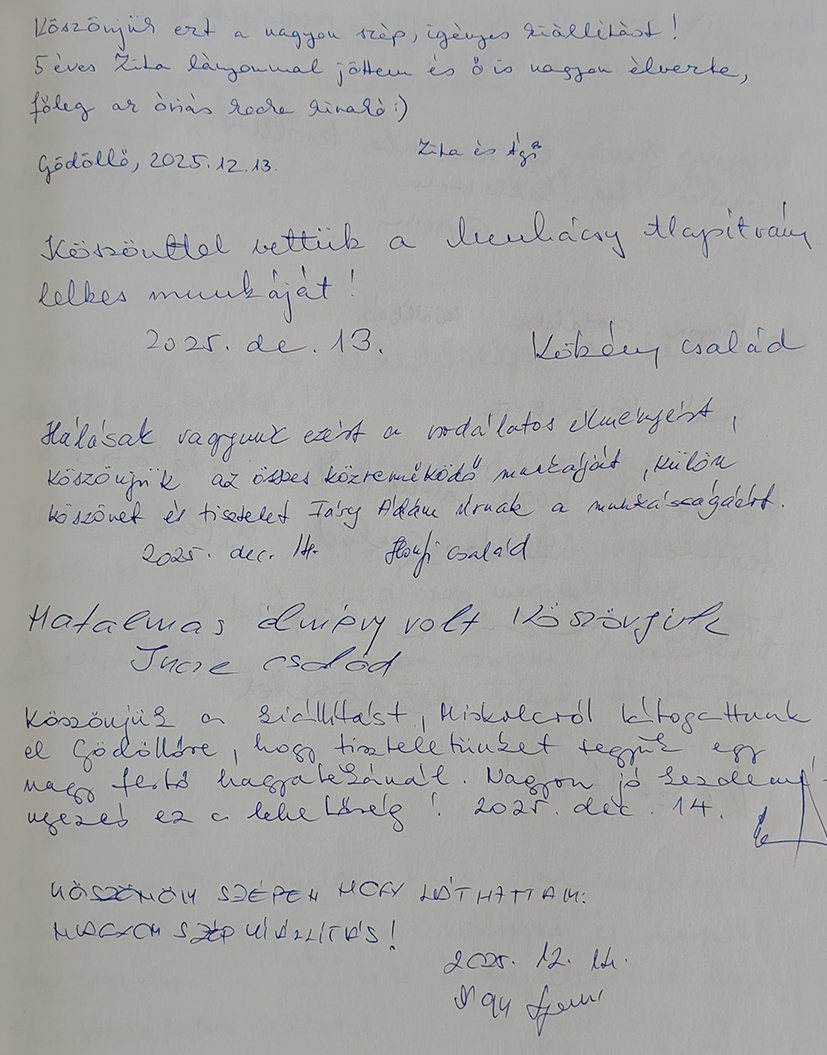 Köszönjük ezt a nagyon szép, igényes kiállítást!
5 éves Zita lányommal jöttem és ő is nagyon élvezte,
főleg az óriás kocka kirakó :)
Zita és Ági
Gödöllő, 2025.12.13.
Köszönttel vettük a Munkácsy Alapítvány
lelkes munkáját!
2025. de. 13.
Kökény család
Hálásak vagyunk ezért a csodálatos élményért,
köszönjük az összes közreműködő munkáját, külön
köszönet és tisztelet Fáry Ádám Úrnak a munkásságáért.
2025. dec. 14.
család
Hatalmas élmény volt Köszönjük
Incze család
Köszönjük a kiállítást, Miskolcról látogattunk
el Gödöllőre, hogy tiszteletünket tegyük egy
nagy festő hagyatékánál. Nagyon jó kezdemé-
nyezés ez a lehetőség! 2025. dec. 14.
KÖSZÖNÖM SZÉPEN HOGY LÁTHATTAM:
NAGYON SZÉP KIÁLLÍTÁS!
2025. 12. 14.